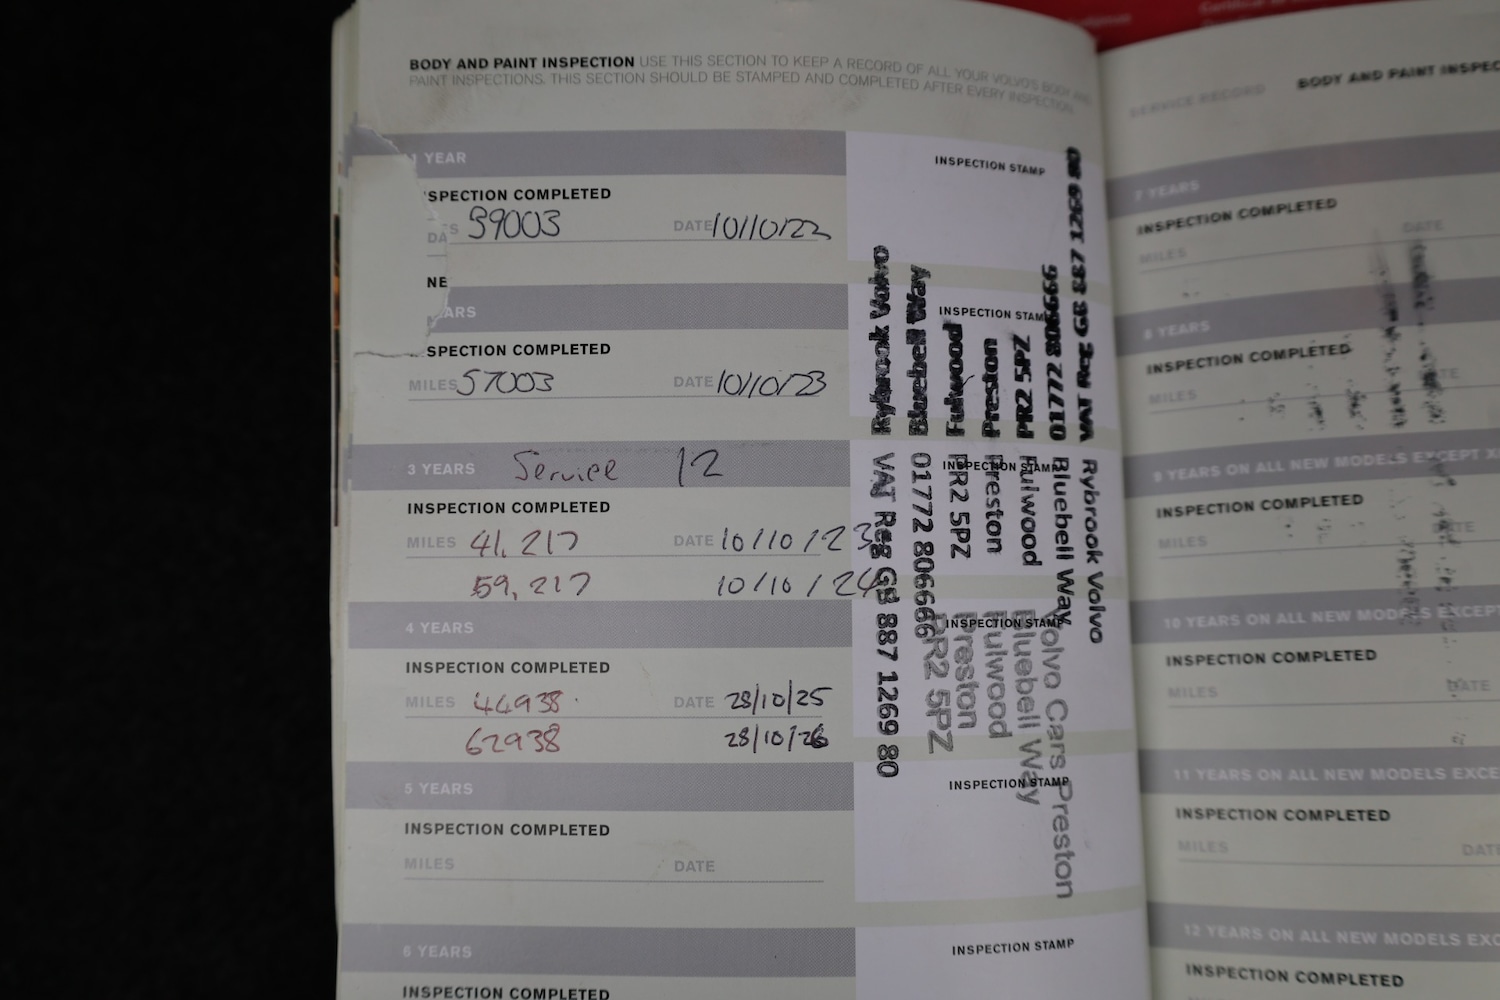 BODY AND PAINT INSPECTION USE THIS SECTION TO KEEP A RECORD OF ALL YOUR VOLVO'S BODY AND
PAINT INSPECTIONS. THIS SECTION SHOULD BE STAMPED AND COMPLETED AFTER EVERY INSPECTION.
1 YEAR
INSPECTION STAMP
SPECTION COMPLETED
DA S 39003 DATE 10/10/22
NE
ARS
INSPECTION STAMP
SPECTION COMPLETED
MILES 57003 DATE 10/10/23
3 YEARS Service 12
INSPECTION STAMP
INSPECTION COMPLETED
MILES 41,217 DATE 10/10/23
59,217 10/10/24
4 YEARS
INSPECTION STAMP
INSPECTION COMPLETED
MILES 44938 DATE 28/10/25
62938 28/10/26
5 YEARS
INSPECTION STAMP
INSPECTION COMPLETED
MILES DATE
6 YEARS
INSPECTION STAMP
INSPECTION COMPLETED
Fulwood
Preston
PR2 5PZ
01772 806666
Rybrook Volvo
Bluebell Way
Fulwood
Preston
PR2 5PZ
01772 806666
VAT Reg GB 887 1269 80
Volvo Cars Preston
Bluebell Way
Fulwood
Preston
PR2 5PZ
SERVICE RECORD BODY AND PAINT INSPEC
7 YEARS
INSPECTION COMPLETED
MILES DATE
8 YEARS
INSPECTION COMPLETED
MILES
9 YEARS ON ALL NEW MODELS EXCEPT X
INSPECTION COMPLETED
MILES
10 YEARS ON ALL NEW MODELS EXCEPT
INSPECTION COMPLETED
MILES DATE
11 YEARS ON ALL NEW MODELS EXCE
INSPECTION COMPLETED
MILES DAT
12 YEARS ON ALL NEW MODELS EXC
INSPECTION COMPLETED